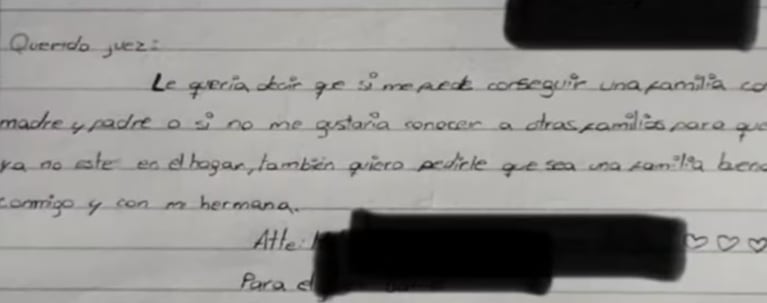 Querido juez:
Le quería decir que si me puede conseguir una familia co
madre y padre o si no me gustaria conocer a otras familias para que
ya no este en el hogar, también quiero pedirle que sea una familia buena
conmigo y con mi hermana.
Atte:
Para el